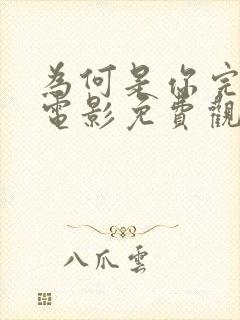 為何是你完
電影免費觀
八爪雲